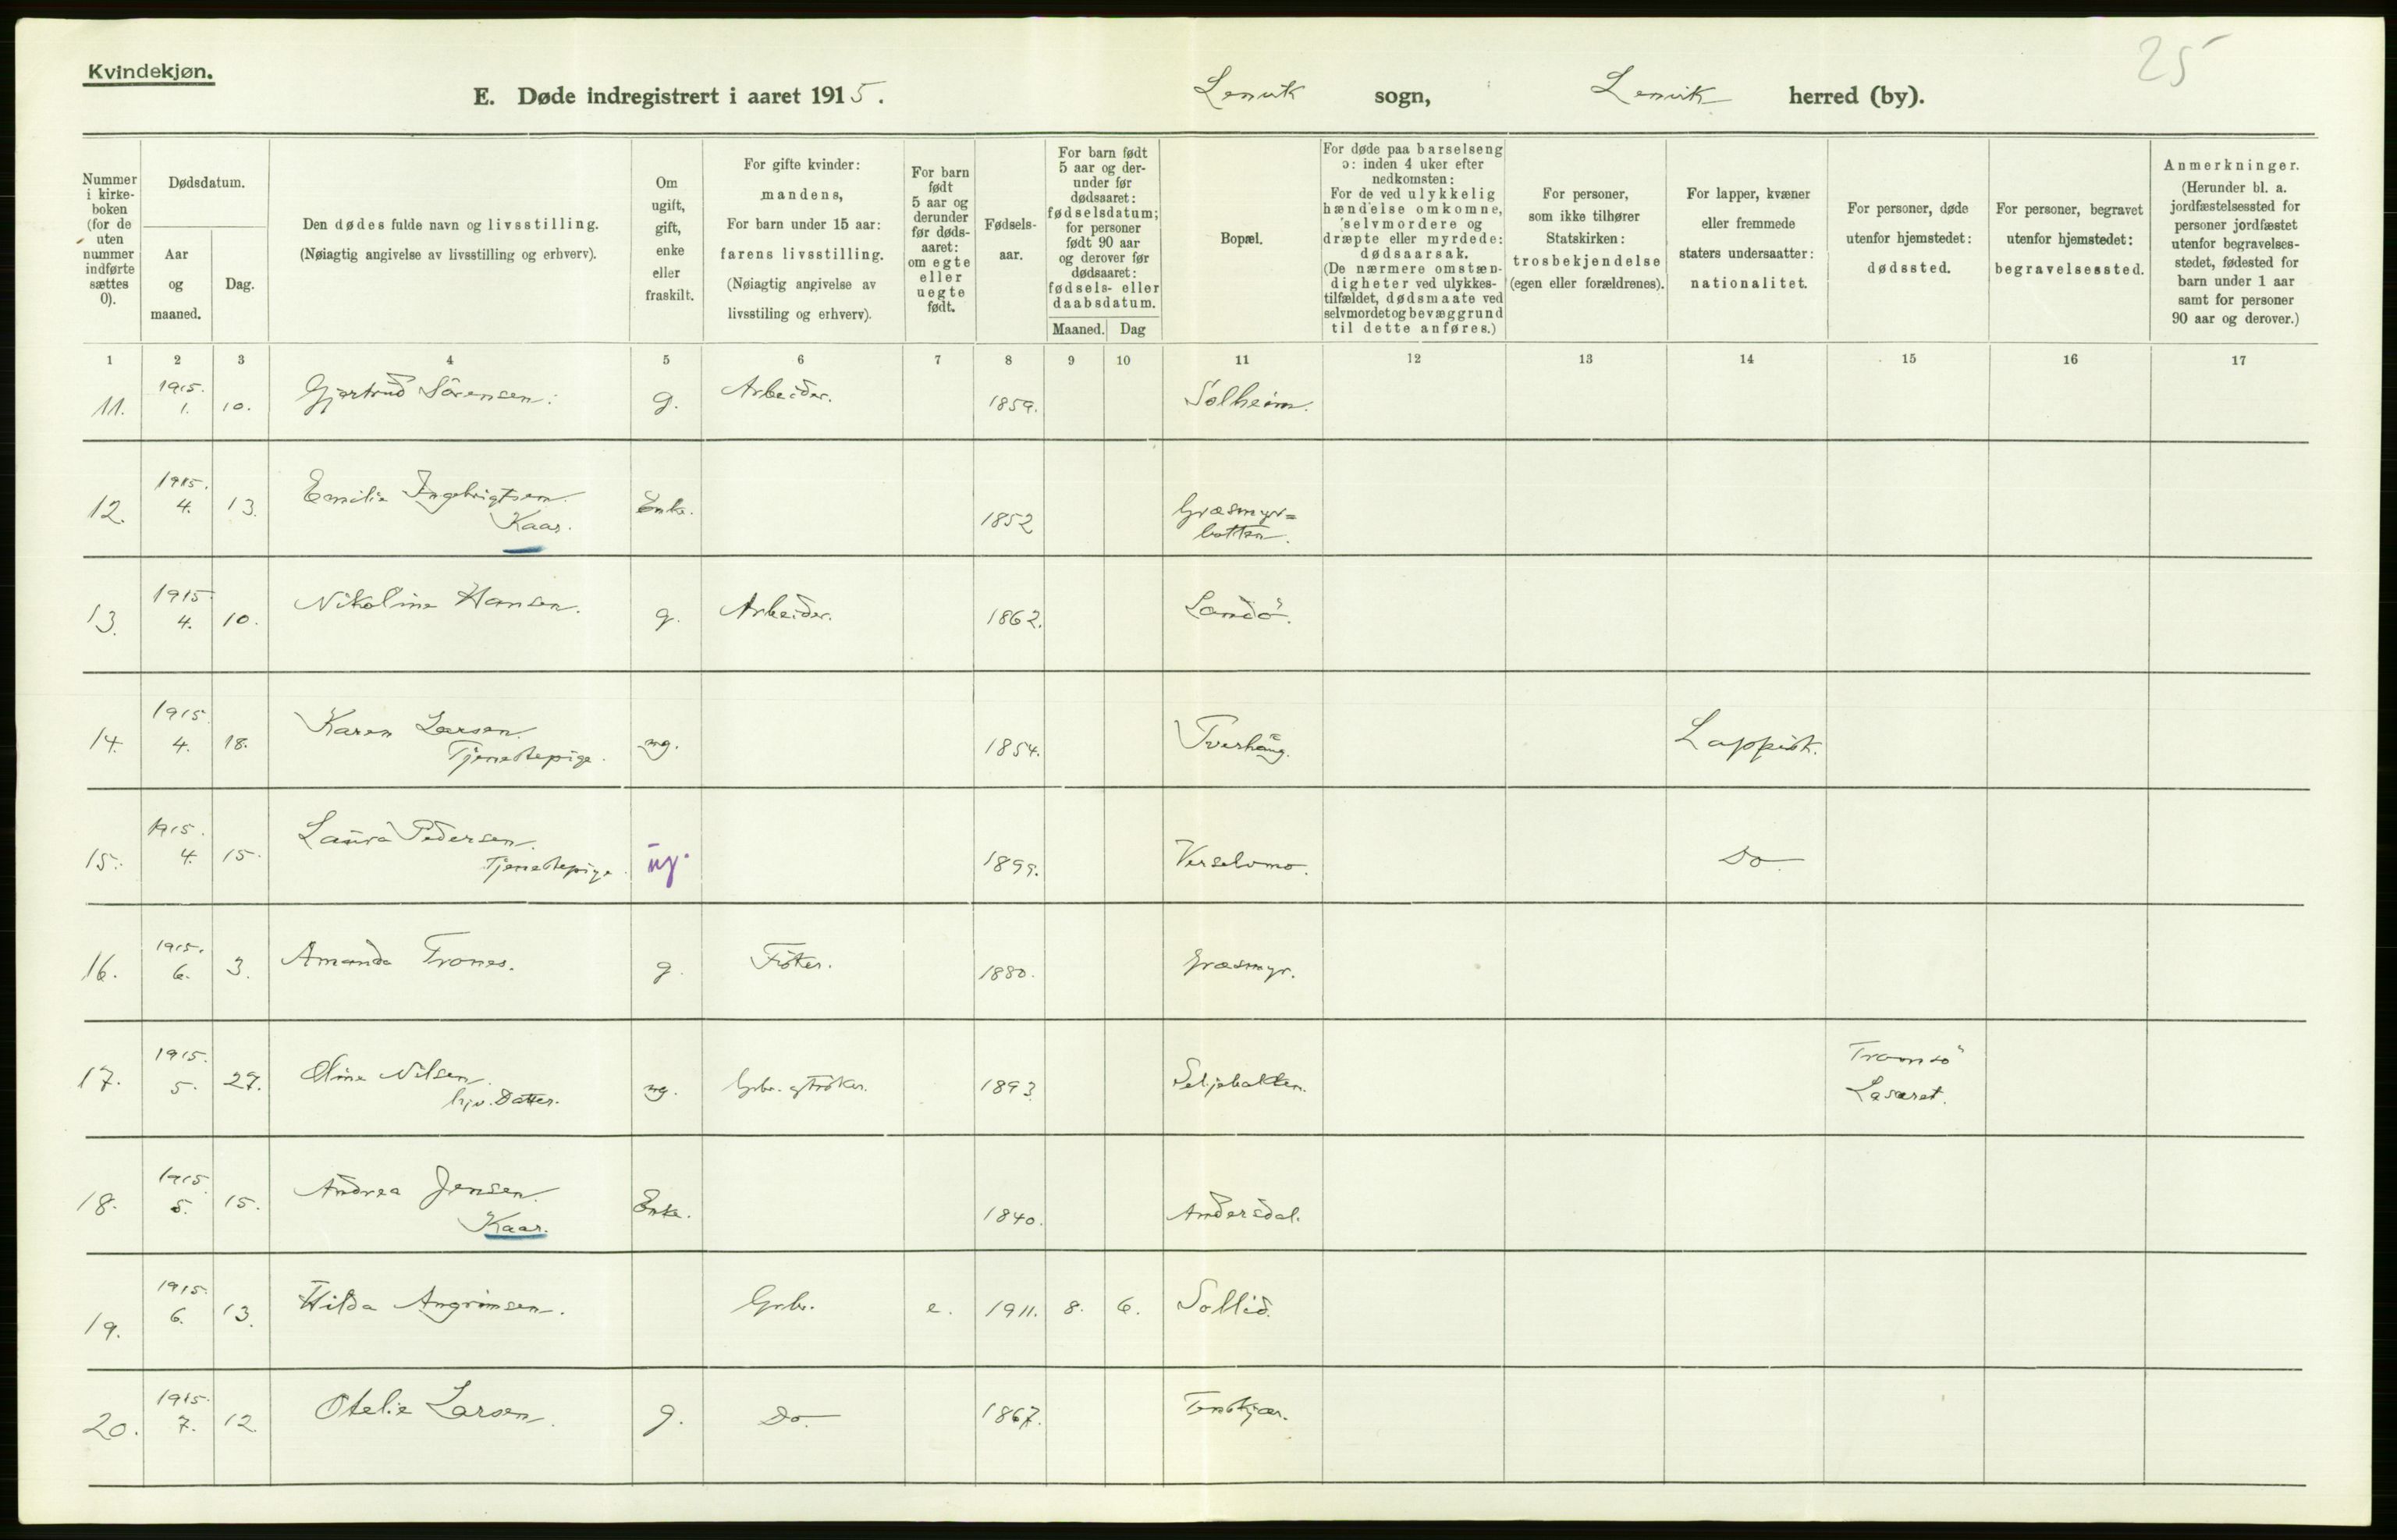 25
Kvindekjøn.
E. Døde indregistrert i aaret 1915. Lenvik sogn, Lenvik herred (by).
Nummer i kirke-boken (for de uten nummer indførte sættes 0).
Dødsdatum.
Aar og maaned.
Dag.
Den dødes fulde navn og livsstilling.
(Nøiagtig angivelse av livsstilling og erhverv).
Om ugift, gift, enke eller fraskilt.
For gifte kvinder: mandens,
For barn under 15 aar: farens livsstilling.
(Nøiagtig angivelse av livsstiling og erhverv).
For barn født 5 aar og derunder før døds-aaret: om egte eller uegte født.
Fødsels-aar.
For barn født 5 aar og der-under før dødsaaret: fødselsdatum; for personer født 90 aar og derover før dødsaaret: fødsels- eller daabsdatum.
Maaned. Dag
Bopæl.
For døde paa barselseng ɔ: inden 4 uker efter nedkomsten:
For de ved ulykkelig hændelse omkomne, selvmordere og dræpte eller myrdede: dødsaarsak.
(De nærmere omstæn-digheter ved ulykkes-tilfældet, dødsmaate ved selvmordet og bevæggrund til dette anføres.)
For personer, som ikke tilhører Statskirken: trosbekjendelse (egen eller forældrenes).
For lapper, kvæner eller fremmede staters undersaatter: nationalitet.
For personer, døde utenfor hjemstedet: dødssted.
For personer, begravet utenfor hjemstedet: begravelsessted.
Anmerkninger.
(Herunder bl. a. jordfæstelsessted for personer jordfæstet utenfor begravelses-stedet, fødested for barn under 1 aar samt for personer 90 aar og derover.)
1 2 3 4 5 6 7 8 9 10 11 12 13 14 15 16 17
11. 1915. 1. 10. Gjertrud Sörensen. g. Arbeider. 1859. Solheim.
12. 1915. 4. 13. Emilie Ingebrigtsen. Enke. 1852 Græsmyr=
Kaar. botten.
13. 1915 4. 10. Nikoline Hansen. g. Arbeider. 1862. Sandö.
14. 1915 4. 18. Karen Larsen. ug. 1854. Tverhaug. Lappisk.
Tjenestepige.
15. 1915. 4. 15. Laura Pedersen. ug. 1899. Do
Tjenestepige.
16. 1915. 6. 3. Amanda Trones. g. Fisker. 1880. Græsmyr.
17. 1915. 5. 27. Oline Nilsen. ug. Grbr. og Fisker. 1893. Seljebakken. Tromsö
hjv. Datter. Lasaret.
18. 1915 5. 15. Andrea Jensen. Enke. 1840. Andersdal.
Kaar.
19. 1915. 6. 13. Hilda Angrimsen. Grbr. e. 1911. 8. 6. Sollid.
20. 1915. 7. 12 Otelie Larsen. g. Do. 1867. Tenskjær.